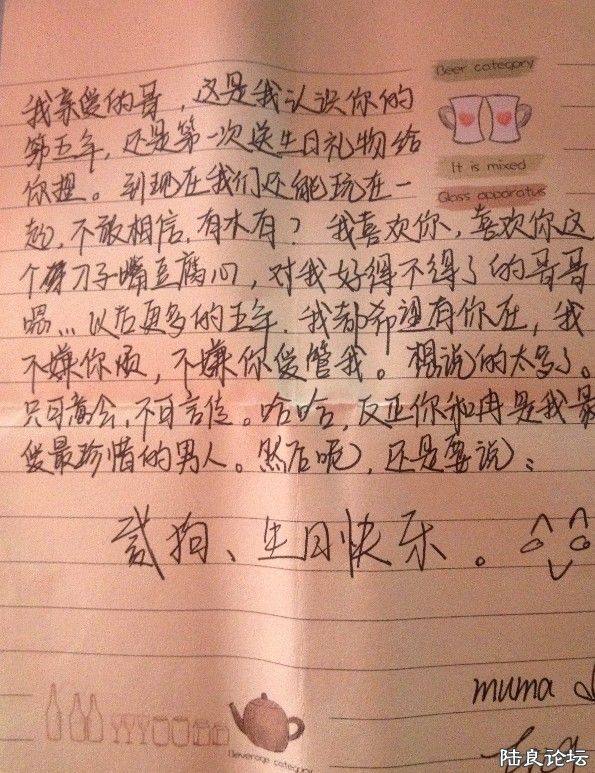 Beer category
It is mixed
Glass apparatus
我亲爱的哥，这是我认识你的
第五年，还是第一次送生日礼物给
你捏。到现在我们还能玩在一
起，不敢相信，有木有？我喜欢你，喜欢你这
个刀子嘴豆腐心，对我好得不得了的哥哥
喂...以后更多的五年，我都希望有你在，我
不嫌你烦，不嫌你爱管我。想说的太多了。
只可意会，不可言传。哈哈，反正你和冉是我最
爱最珍惜的男人。然后呢，还是要说：
贰狗、生日快乐。
Beverage category
muma
陆良论坛